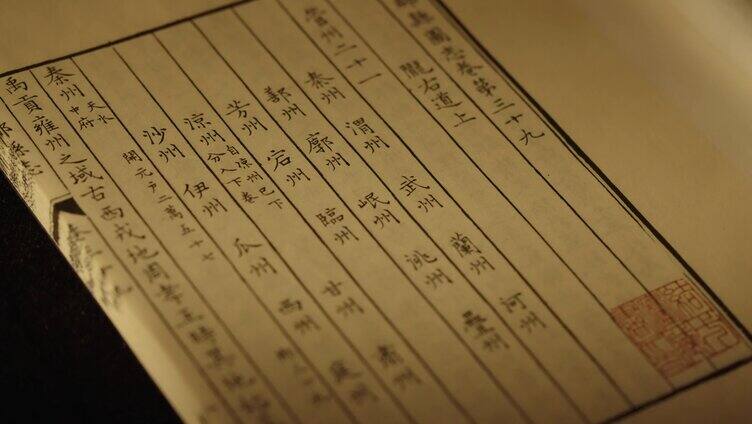 郡縣圖志卷第三十九
隴右道上
管州二十一
秦州 渭州 武州 蘭州 河州
鄯州 廓州 岷州 洮州 疊州
芳州 宕州 臨州
涼州 自涼州已下分入下卷 甘州 肅州
沙州 伊州 瓜州 西州 庭州
秦州 天水 中府 開元户二萬五十七
禹貢雍州之域古西戎地周孝王時其地